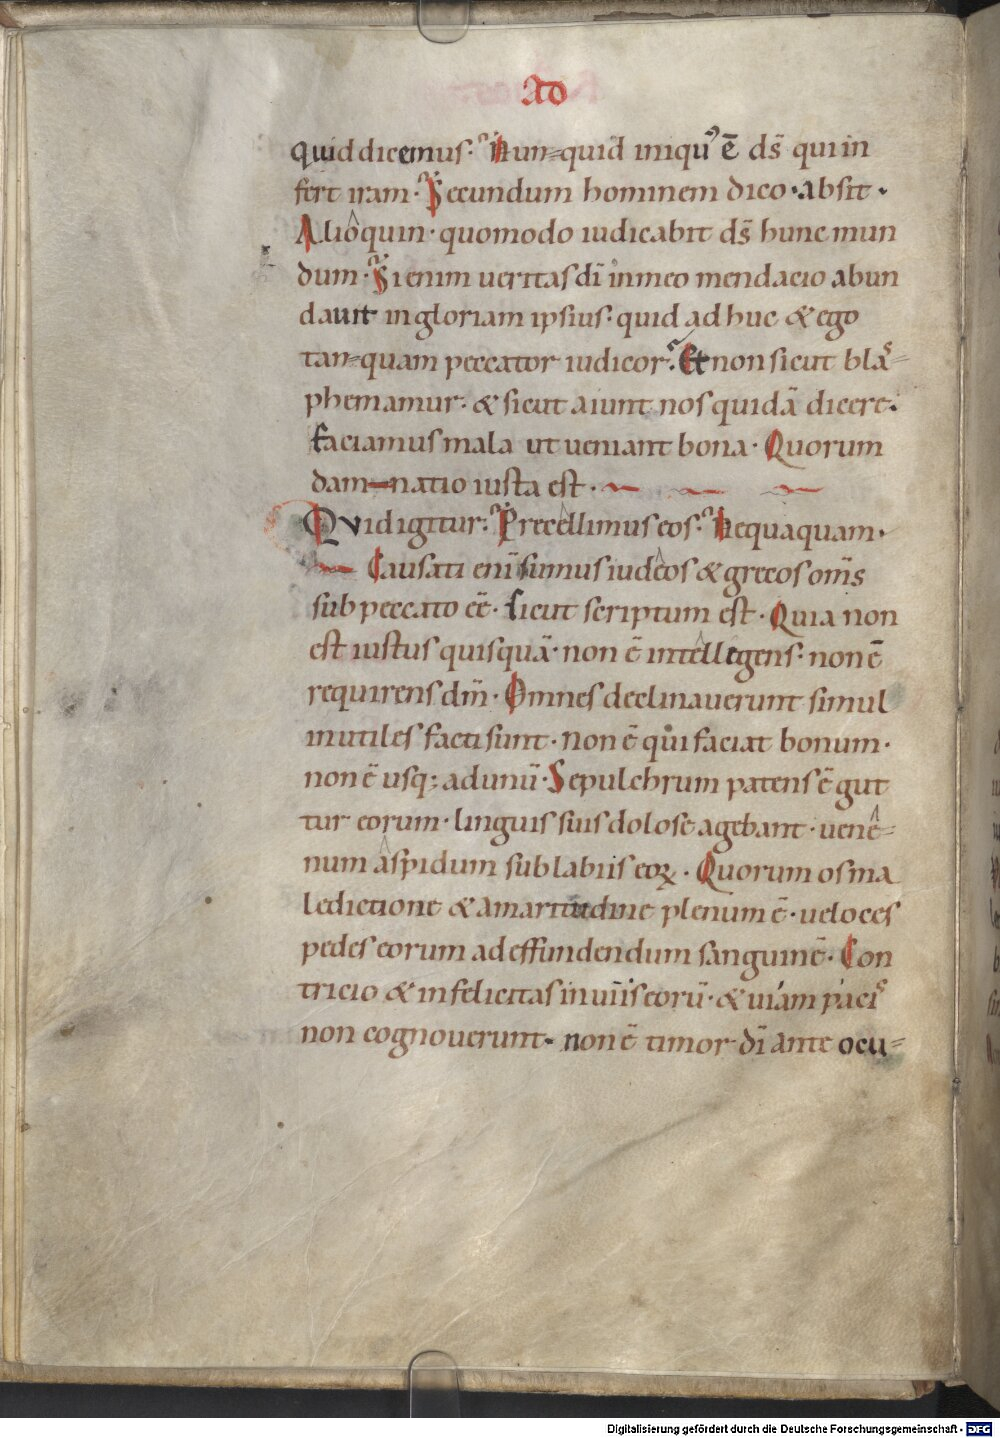 AD
quid dicemus. Nun-quid iniqu᾽ ē ds̄ qui in
fert iram. Secundum hominem dico. absit.
Alioquin. quomodo iudicabit ds̄ hunc mun
dum. Si enim ueritas dī in meo mendacio abun
dauit in gloriam ipsius. quid ad huc & ego
tan-quam peccator iudicor. Et non sicut blas-
phemamur. & sicut aiunt nos quidā dicere.
faciamus mala ut ueniant bona. Quorum
dam-natio iusta est.
QVid igitur. Precellimus eos. Nequaquam.
Causati enī sumus iudeos & grecos om̄s
sub peccato eē. sicut scriptum est. Quia non
est iustus quisquā. non ē intellegens. non ē
requirens dm̄. Omnes declinauerunt simul
inutiles facti sunt. non ē qui faciat bonum.
non ē usq; ad unū. Sepulchrum patens ē gut
tur eorum. linguis suis dolose agebant. uene-
num aspidum sub labiis eoꝝ. Quorum os ma
ledictione & amaritudine plenum ē. ueloces
pedes eorum ad effundendum sanguinē. Con
tricio & infelicitas in uiis eorū. & uiam pacis
non cognouerunt. non ē timor dī ante ocu-
Digitalisierung gefördert durch die Deutsche Forschungsgemeinschaft - DFG